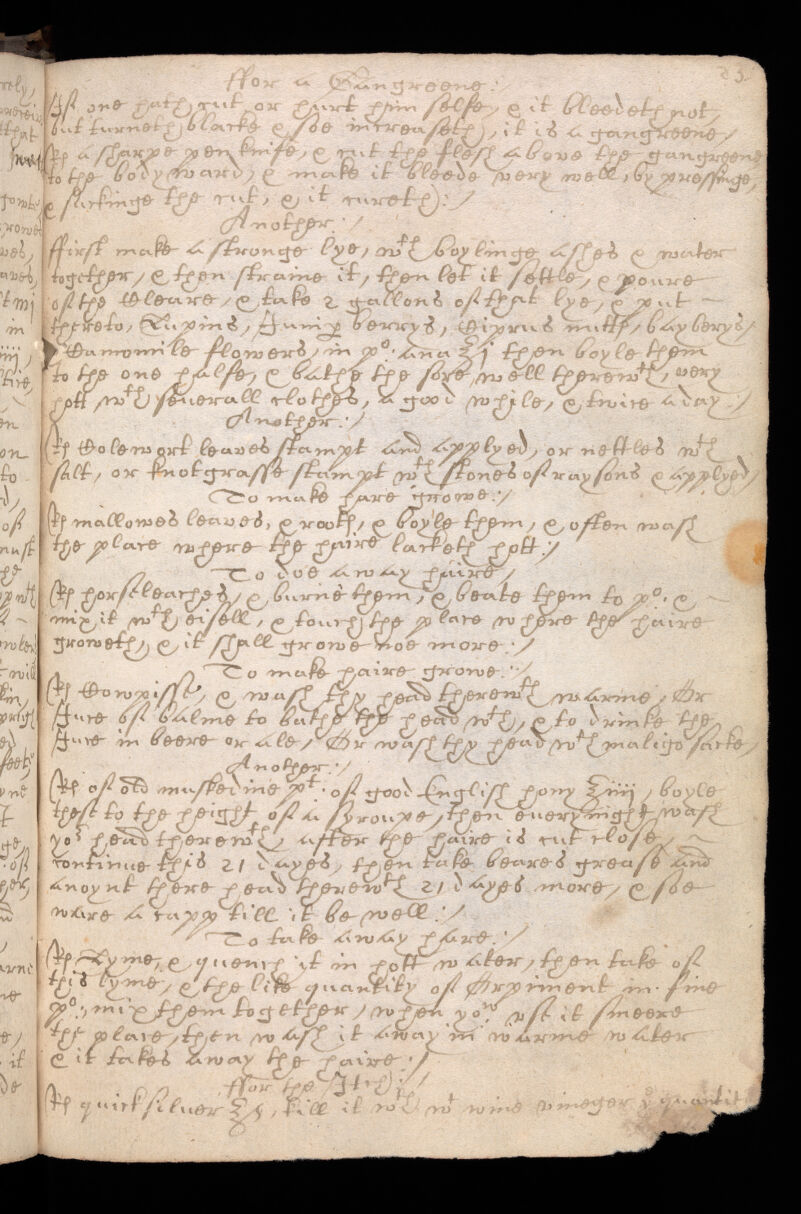 23
ffor a Gangreene:/
If one hath cut or hurt him selfe, & it bleedeth not,
but turneth blacke & soe increaseth, it is a gangreene,/
Rx a sharpe penknife, & cut the flesh above the gangreene
to the bodyward, & make it bleede very well, by pressinge,
& suckinge the cut, & it cureth:/
Another:/
ffirst make a stronge lye, wth boylinge ashes & water
together, & then straine it, then let it settle, & poure
of the Cleare, & take 2 gallons of that lye, & put
thereto, Lupins, Junip berrys, Ciprus nutts, bayberys,
Camomile flowers, in po: ana ℥j then boyle them
to the one halfe, & bathe the sore well therewth, very
hott wth severall clothes, a good while, & twice a day:/
Another:/
Rx Colewort leaves stampt and applyed, or nettles wth
salt, or knotgrasse stampt wth stones of raysons & applyed/
To make hare growe:/
Rx mallowes leaves, & rooth, & boyle them, & often wash
the place where the haire lacketh hott:/
To doe away haire/
Rx horseleaches, & burne them, & beate them to po. &
mix it wth eisell, & touch the place where the haire
groweth, & it shall growe noe more:/
To make haire growe:/
Rx Cowpisse, & wash thy head therewth warme, Or
Juce of balme to bathe the head wth, & to drinke the
Juce in beere or ale, Or wash thy head wth maligo sacke/
Another:/
Rx of old muskedine pt. of good English hony ℥iiij, boyle
these to the height of a syroupe, then every night wash
yor head therewth, after the haire is cut close,
continue this 21 dayes, then take beares grease and
anoynt there head therewth 21 dayes more, & soe
ware a capp till it be well:/
To take away hare:/
Rx Lyme, & quench it in hott water, then take of
this lyme, & the like quantity of Orpiment in fine
po:, mix them together, when you use it smeere
the place, then wash it away in warme water
& it takes away the haire:/
ffor the Itch:/
Rx quicksilver ℥j, kill it wth wt wine vineger ye quantit